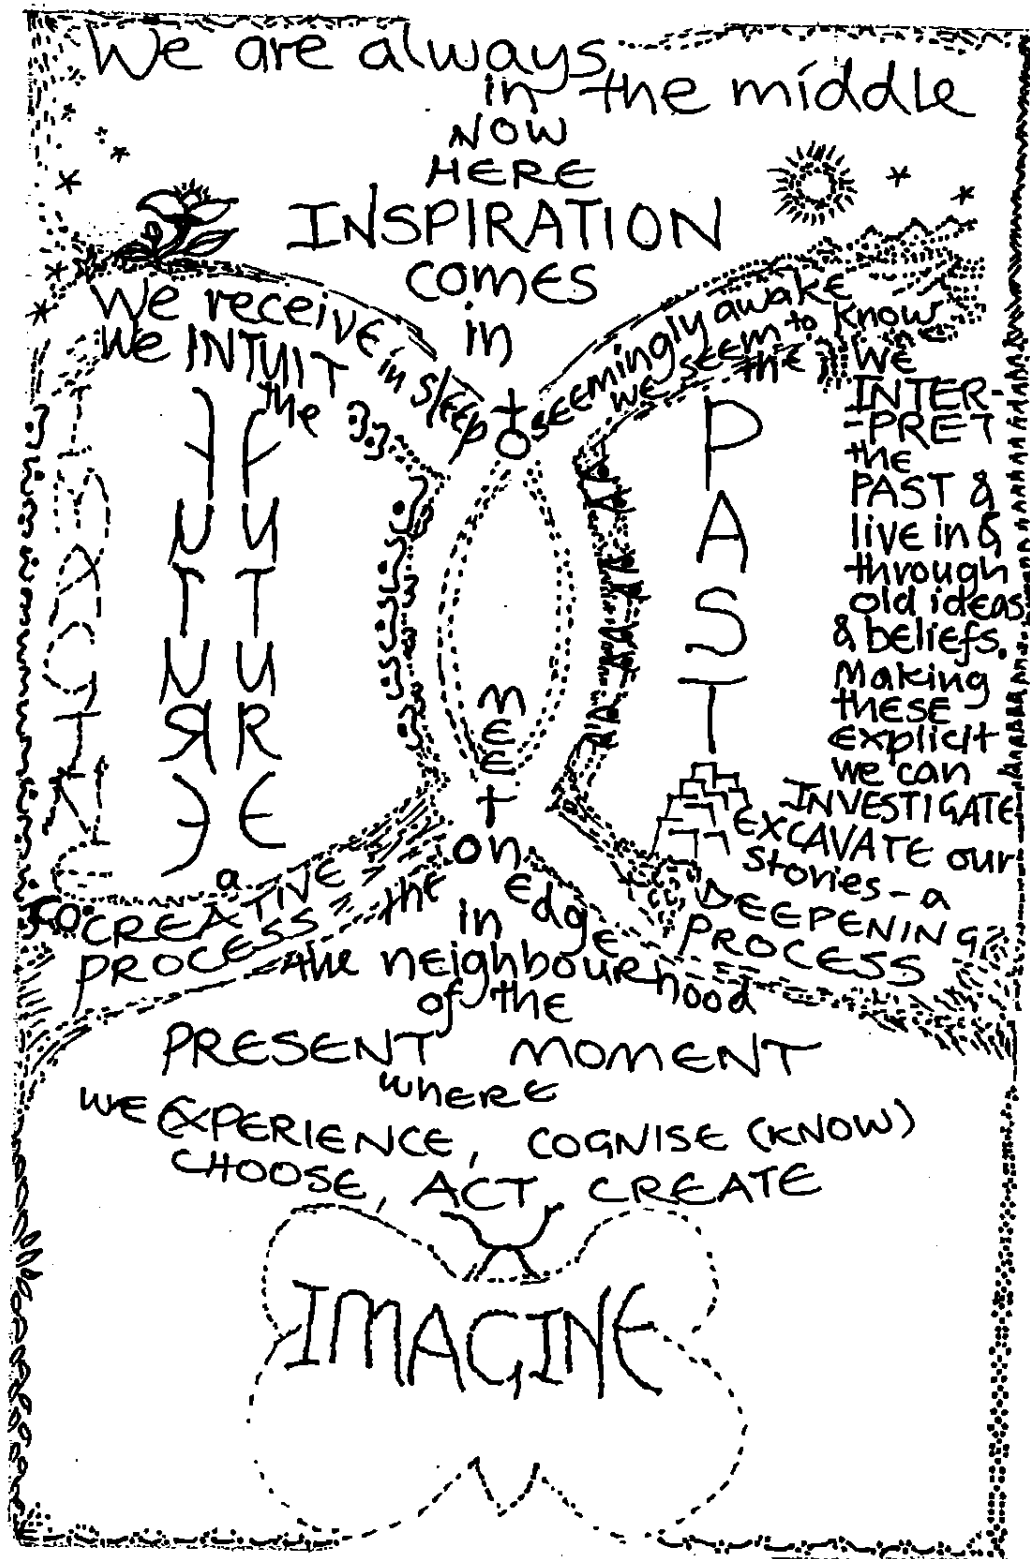 We are always
in the middle
NOW
HERE
INSPIRATION
COMES
in
to
We receive in sleep
We INTUIT
the
FUTURE
FUTURE
a
CREATIVE
PROCESS
seemingly awake
we seem to know
the
PAST
We
INTER-
-PRET
the
PAST &
live in &
through
old ideas
& beliefs.
Making
these
explicit
we can
INVESTIGATE
EXCAVATE our
stories - a
DEEPENING
PROCESS
MEET
on
the edge
in
the neighbourhood
of the
PRESENT MOMENT
where
we EXPERIENCE, COGNISE (KNOW)
CHOOSE, ACT, CREATE
IMAGINE